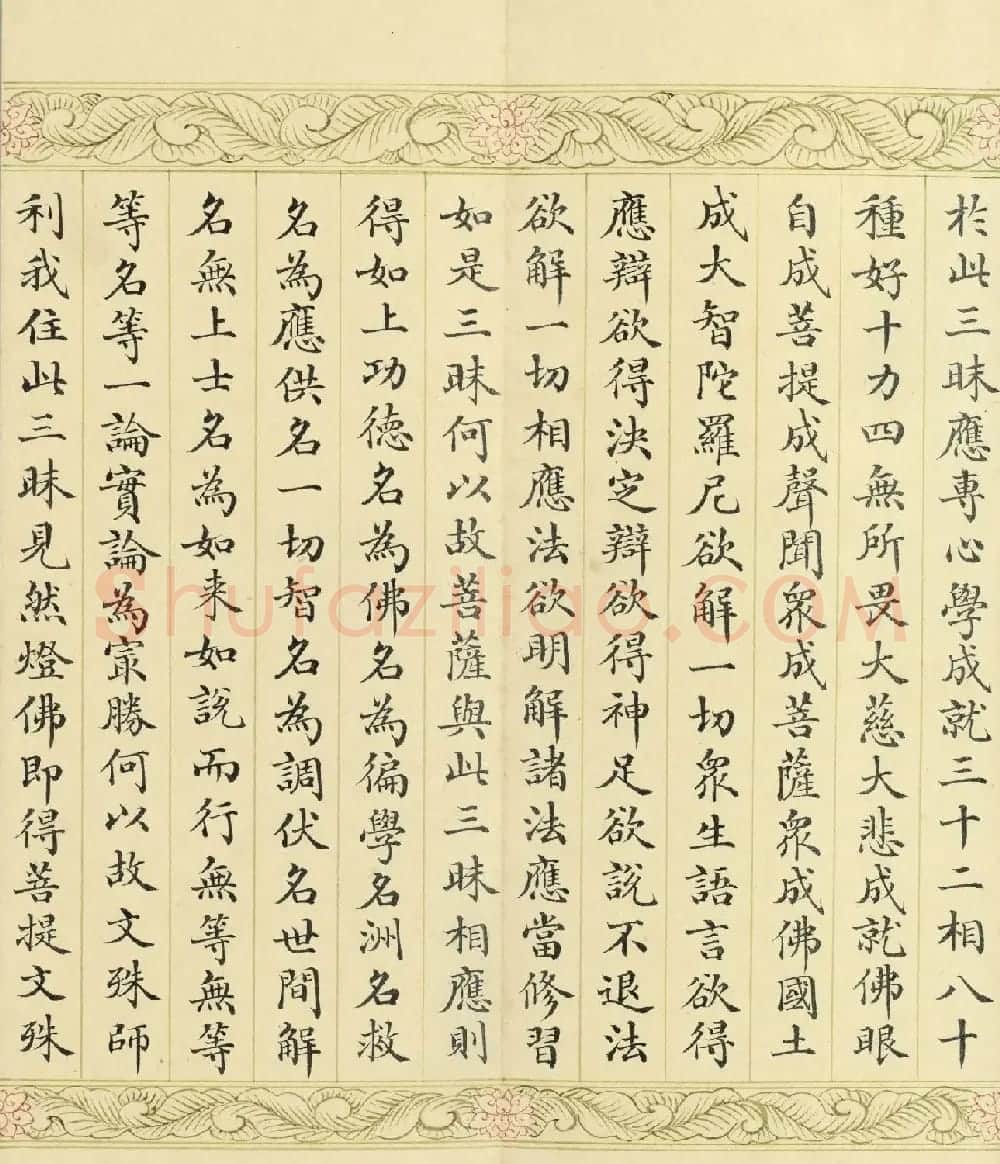 於此三昧應專心學成就三十二相八十
種好十力四無所畏大慈大悲成就佛眼
自成菩提成聲聞衆成菩薩衆成佛國土
成大智陀羅尼欲解一切衆生語言欲得
應辯欲得決定辯欲得神足欲說不退法
欲解一切相應法欲明解諸法應當修習
如是三昧何以故菩薩與此三昧相應則
得如上功德名為佛名為徧學名洲名救
名為應供名一切智名為調伏名世間解
名無上士名為如来如說而行無等無等
等名等一論實論為寂勝何以故文殊師
利我住此三昧見然燈佛即得菩提文殊
Shufaziliao.COM